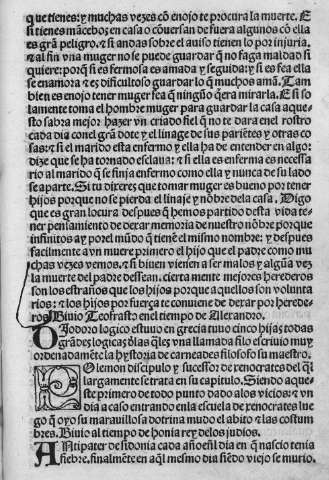 que tienes: y muchas vezes cõ enojo te procura la muerte. E
si tienes mãcebos en casa o cõuersan de fuera algunos cõ ella
es grã peligro. ⁊ si andas sobre el auiso tienen lo por injuria.
⁊ al fin vna muger no se puede guardar q̃ no faga maldad si
quiere: porq̃ si es fermosa es amada y seguida: y si es fea ella
se enamora ⁊ es dificultoso guardar lo q̃ muchos amã. Tam
bien es enojo tener muger fea q̃ ningũo q̃era mirarla. E si so
lamente toma el hombre muger para guardar la casa aque-
sto sabra mejor hazer vn criado fiel q̃ no te dara en el rostro
cada dia con el grã dote y el linage de sus pariẽtes y otras co
sas: ⁊ si el marido esta enfermo y ella ha de entender en algo:
dize que se ha tornado esclaua: ⁊ si ella es enferma es necessa
rio al marido q̃ se finja enfermo con ella y nunca de su lado
se aparte. Si tu dixeres que tomar muger es bueno por tener
hijos porque no se pierda el linaje y nõbre de la casa. Digo
que es gran locura despues q̃ hemos partido desta vida te-
ner pensamiento de dexar memoria de nuestro nõbre porque
infinitos ay por el mũdo q̃ tienẽ el mismo nombre: y despues
facilmente a vn muere primero el hijo que el padre como mu
chas vezes vemos. ⁊ si biuen vienen a ser malos y algũa vez
la muerte del padre dessean. cierta mente mejores herederos
son los estraños que los hijos porque a aquellos son volunta
rios: ⁊ los hijos por fuerça te conuiene de dexar por herede-
ros. Biuio Teofrasto en el tiempo de Alexandro.
DIodoro logico estuuo en grecia tuuo cinco hijas todas
grãdes logicas delas q̃les vna llamada filo escriuio muy
ordenadamẽte la hystoria de carneades filosofo su maestro.
POlemon discipulo y sucessor de xenocrates del q̃l
largamente se trata en su capitulo. Siendo aque-
ste primero de todo punto dado alos vicios: ⁊ vn
dia a caso entrando enla escuela de xenocrates lue
go q̃ oyo su marauillosa dotrina mudo el abito ⁊ las costum
bres. Biuio al tiempo de honia rey delos judios.
ANtipater de sidonia cada año en el dia en q̃ nascio tenia
fiebre. finalmẽte en aq̃l mesmo dia siẽdo viejo se murio.